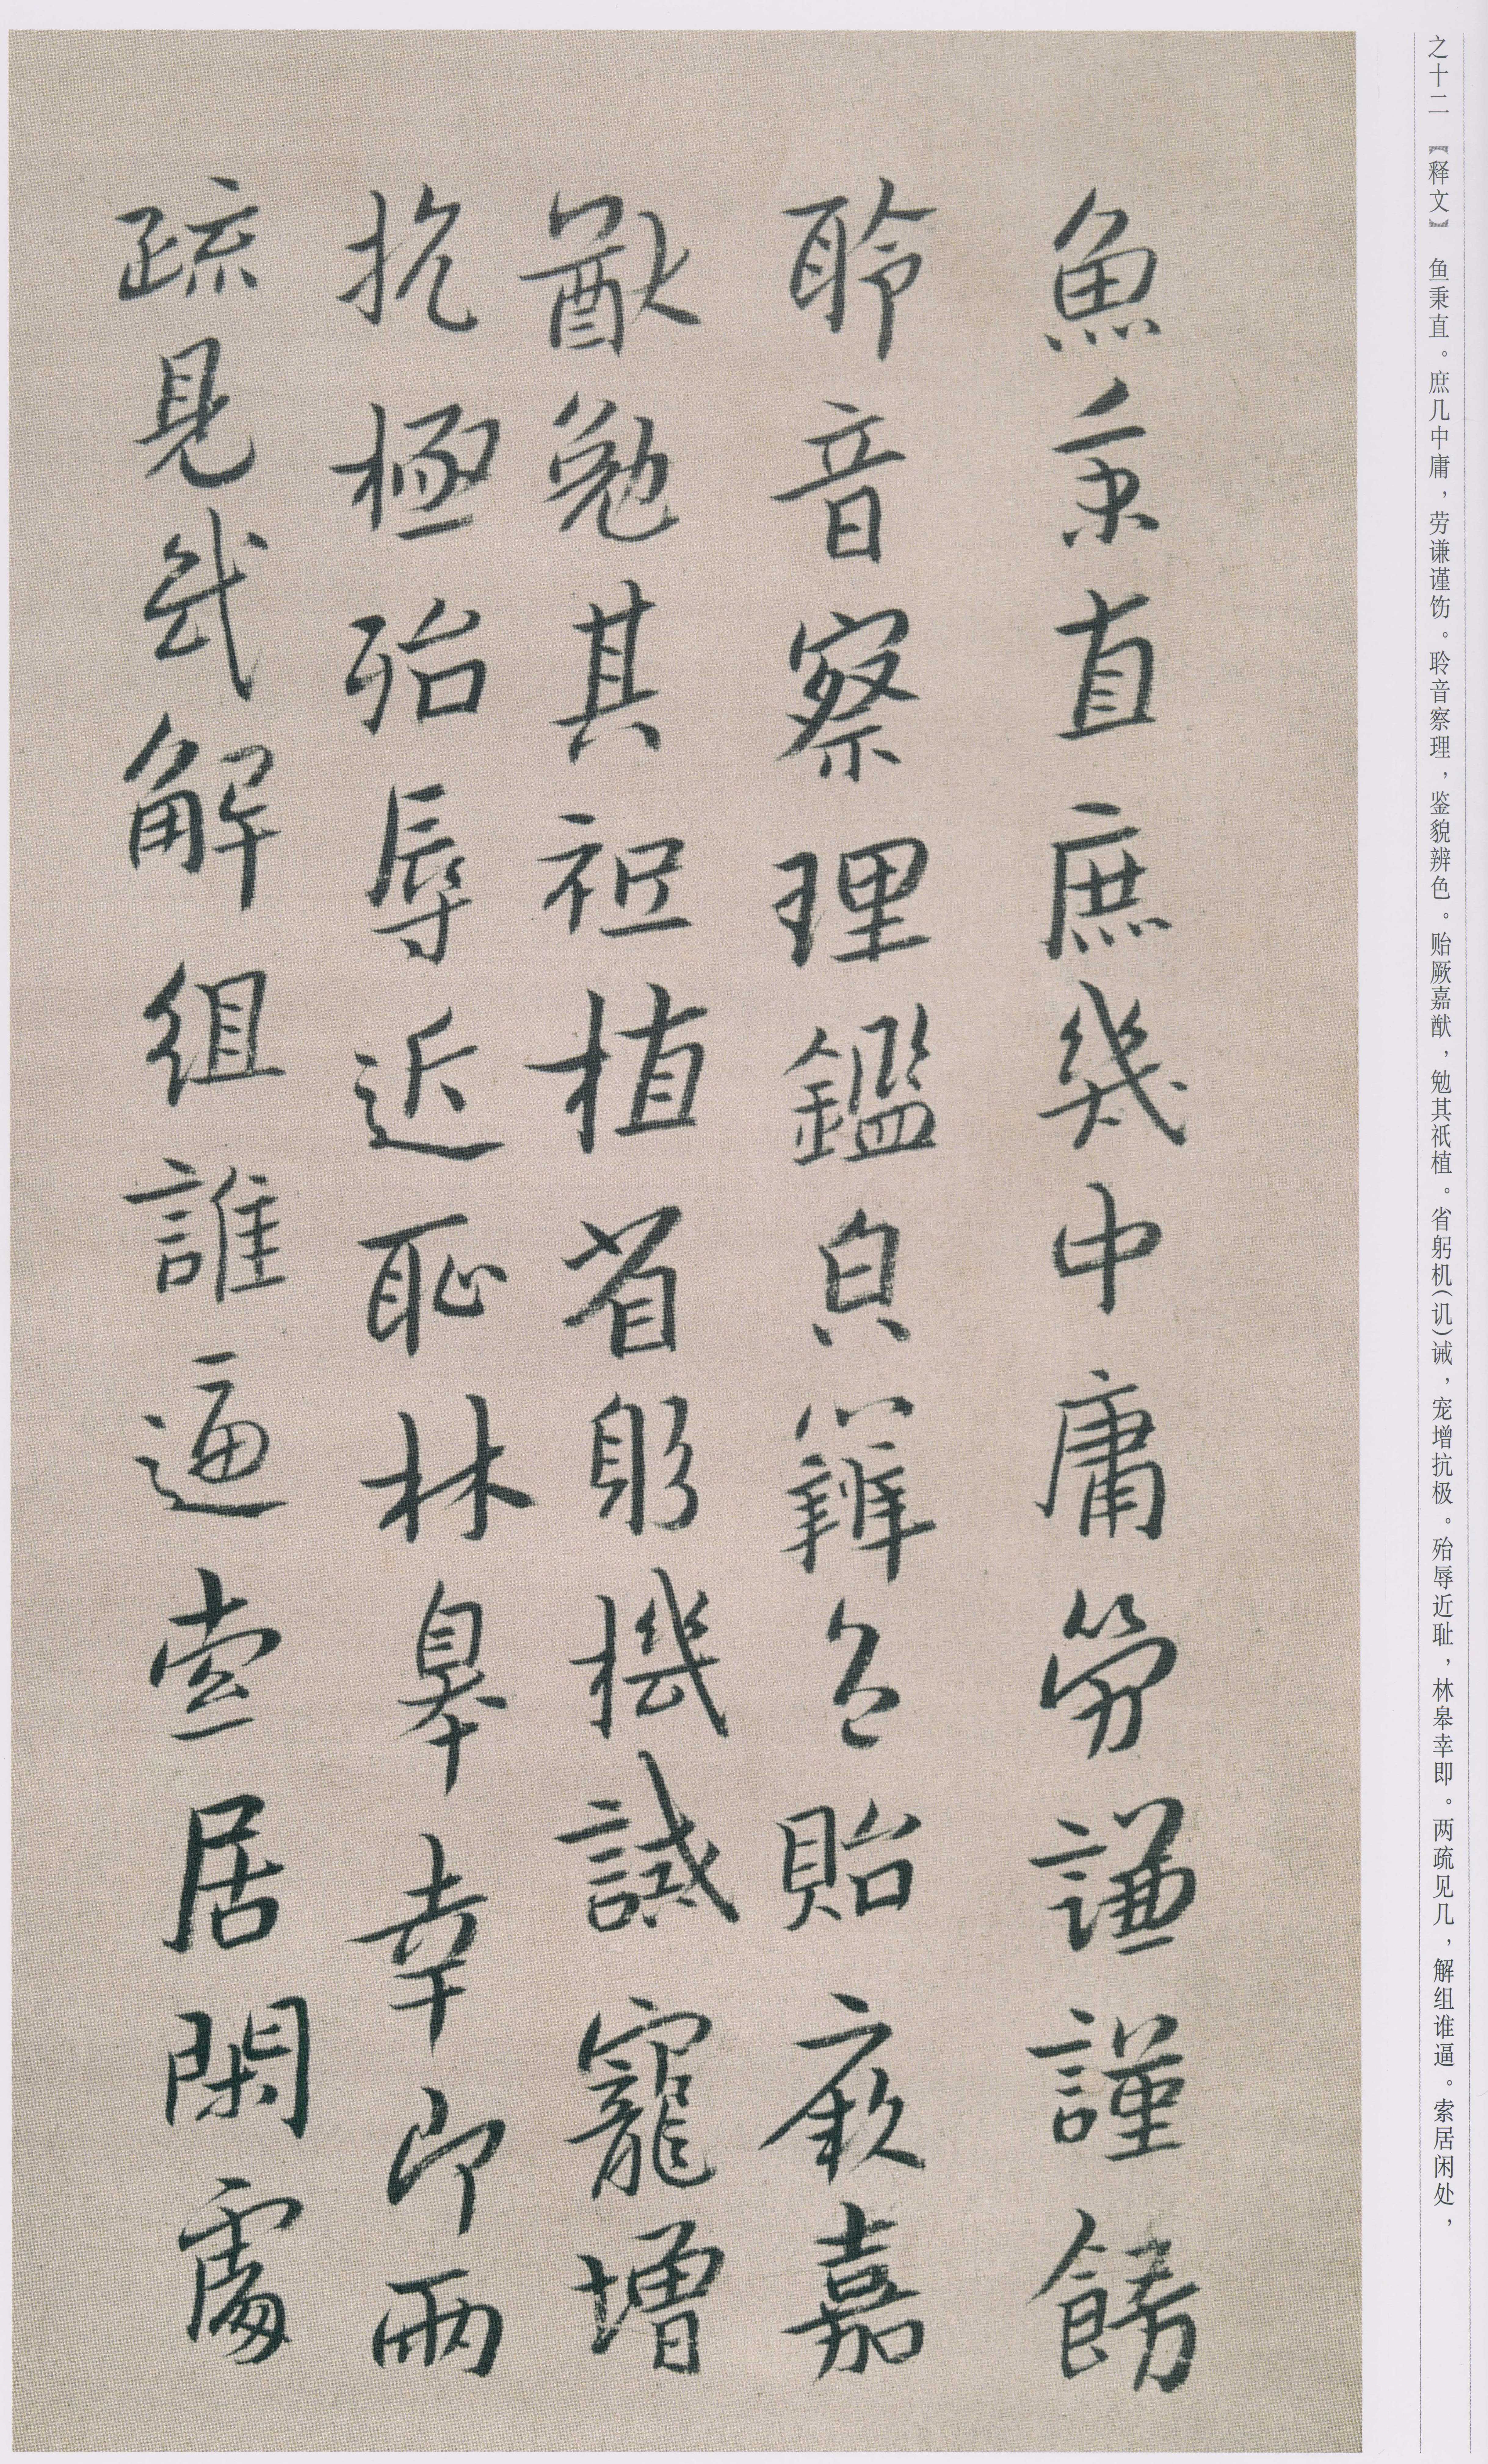 之十二 【释文】 鱼秉直。庶几中庸，劳谦谨饬。聆音察理，鉴貌辨色。贻厥嘉猷，勉其祇植。省躬机（讥）诫，宠增抗极。殆辱近耻，林皋幸即。两疏见几，解组谁逼。索居闲处，
魚秉直庶幾中庸勞謙謹飭
聆音察理鑑皃辨色貽厥嘉
猷勉其祗植省躬機誡寵增
抗極殆辱近恥林皋幸即兩
疏見幾解組誰逼索居閑處